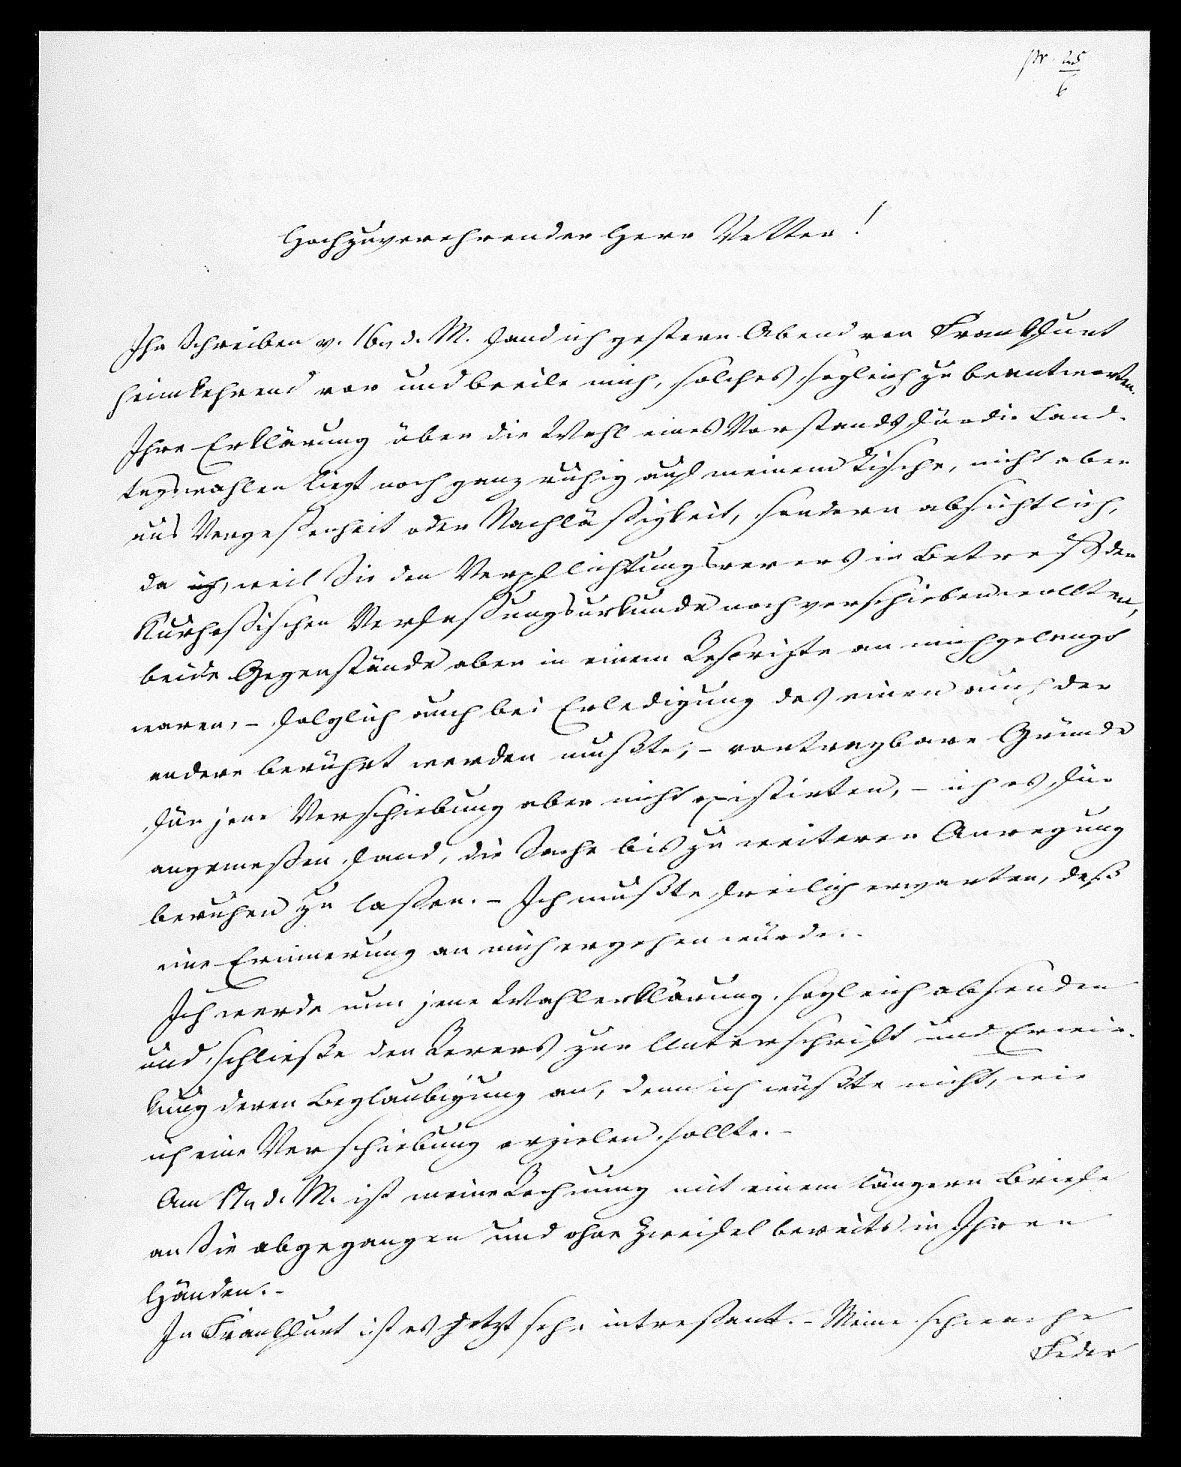 pr. 25/6
Hochzuverehrender Herr Vetter!
Ihr Schreiben v. 16n d. M. fand ich gestern Abend von Frankfurt
heimkehrend vor und beeile mich, solches sogleich zu beantworten.
Ihre Erklärung über die Wahl eines Vorstands für die Land-
tagswahlen liegt noch ganz ruhig auf meinem Tische, nicht aber
aus Vergeßenheit oder Nachläßigkeit, sondern absichtlich,
da ich, weil Sie den Verpflichtungsrevers in Betreff der
Kurheßischen Verfaßungsurkunde noch verschieben wollten,
beide Gegenstände aber in einem Rescripte an mich gelangt
waren, – folglich auch bei Erledigung des einen auch der
andere berührt werden mußte; – vortragbare Gründe
für jene Verschiebung aber nicht existirten, – ich es für
angemeßen fand, die Sache bis zu weiterer Anregung
beruhen zu laßen. – Ich mußte freilich erwarten, daß
eine Erinnerung an mich ergehen würde. –
Ich werde nun jene Wahlerklärung sogleich absenden
und schließe den Revers zur Unterschrift und Erwir-
kung deren Beglaubigung an, denn ich wüßte nicht, wie
ich eine Verschiebung erzielen sollte. –
Am 17n d. M. ist meine Rechnung mit einem längern Briefe
an Sie abgegangen und ohne Zweifel bereits in Ihren
Händen. –
In Frankfurt ist es jetzt sehr intreßant. – Meine schwache
Feder